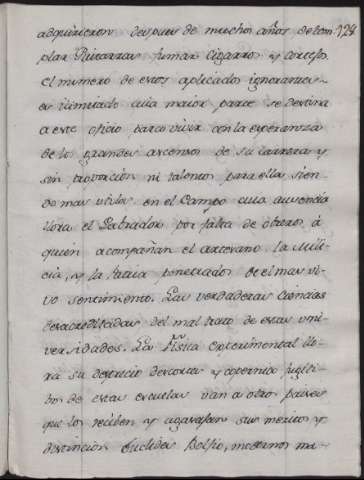 adquirieron despues de muchos años de tem
128
plar Guitarras fumar Cigarros y cortejo.
el numero de estos aplicados ignorantes
es ilimitado cuia maior parte se destina
a este oficio para vivir con la esperanza
de los grandes ascensos de su carrera y
sin proporcion ni talentos para ella sien
do mas utiles en el Campo cuia ausencia
llora el Labrador por falta de obreros à
quien acompañan el artesano la Mili
cia, y la Patria penetrados de el mas vi
vo sentimiento. Las verdaderas Ciencias
desacreditadas del mal trato de estas uni
versidades. La Fisica experimental llo
ra su desprecio descartes y copernico fugiti
bos de estas escuelas van a otros paises
que los reciben y agasajan sus meritos y
distincion Euclides modernos ma